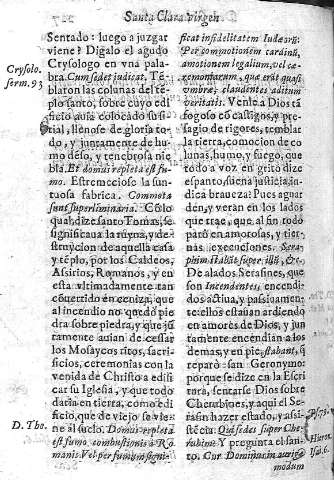 Santa Clara virgen
Sentado: luego a juzgar
viene? Digalo el agudo
Crysologo en vna pala-
bra. Cum sedet judicat. Tē-
blaron las colunas del tem-
plo santo, sobre cuyo edi
ficio auia colocado su si-
tial, llenose de gloria to-
do, y juntamente de hu-
mo denso, y tenebrosa nie
bla. Et domus repleta est fu-
mo. Estremeciose la sun-
tuosa fabrica. Commota
sunt superliminaria. Cō lo
qual, dize santo Tomas, se
significaua la ruyna, y des-
truycion de aquella casa
y tēplo, por los Caldeos,
Assirios, Romanos, y en
esta vltimadamente tan
conuertido en ceniza, que
al incendio no quedò pie
dra sobre piedra, y que jū
tamente auian de cessar
los Mosaycos ritos, sacri-
ficios, ceremonias con la
venida de Christo a edifi
car su Iglesia, y que todo
daria en tierra, como edi
ficio, que de viejo se vie-
ne al suelo. Domus repleta
est fumo combustionis à Ro
manis. Vel per fumum signi-
Crysolo.
serm. 93
D. Tho.
ficat infidelitatem Iudæorū:
Per commotionem cardinū,
amotionem legalium, vel cæ-
remoniarum, quæ erāt quasi
umbræ, claudentes aditum
veritatis. Vente a Dios tā
fogoso cō castigos, y pre-
sagio de rigores, temblar
la tierra, comocion de co
lunas, humo, y fuego, que
todo a voz en grito dize
espanto, suena justicia, in-
dica braueza? Pues aguar
den, y veran en los lados
que trae, que al fin todo
parò en amorosas, y tier-
nas execuciones. Sera-
phim stabāt super illud, &c.
De alados Serafines, que
son Incendentes, encendi-
dos actiua, y passiuamen-
te: ellos estauan ardiendo
en amores de Dios, y jun
tamente encēdian a los
demas, y en pie, stabant, q̄
reparò san Geronymo:
porque se dize en la Escri
tura, sentarse Dios sobre
Cherubines, y aqui el Se-
rafin hazer estado, y assi-
stēcia: Qui sedes super Che-
rubim: Y pregunta el san-
to. Cur Dominum auriga
modum
Ps. 79.
Hieron.
Isai. 6.